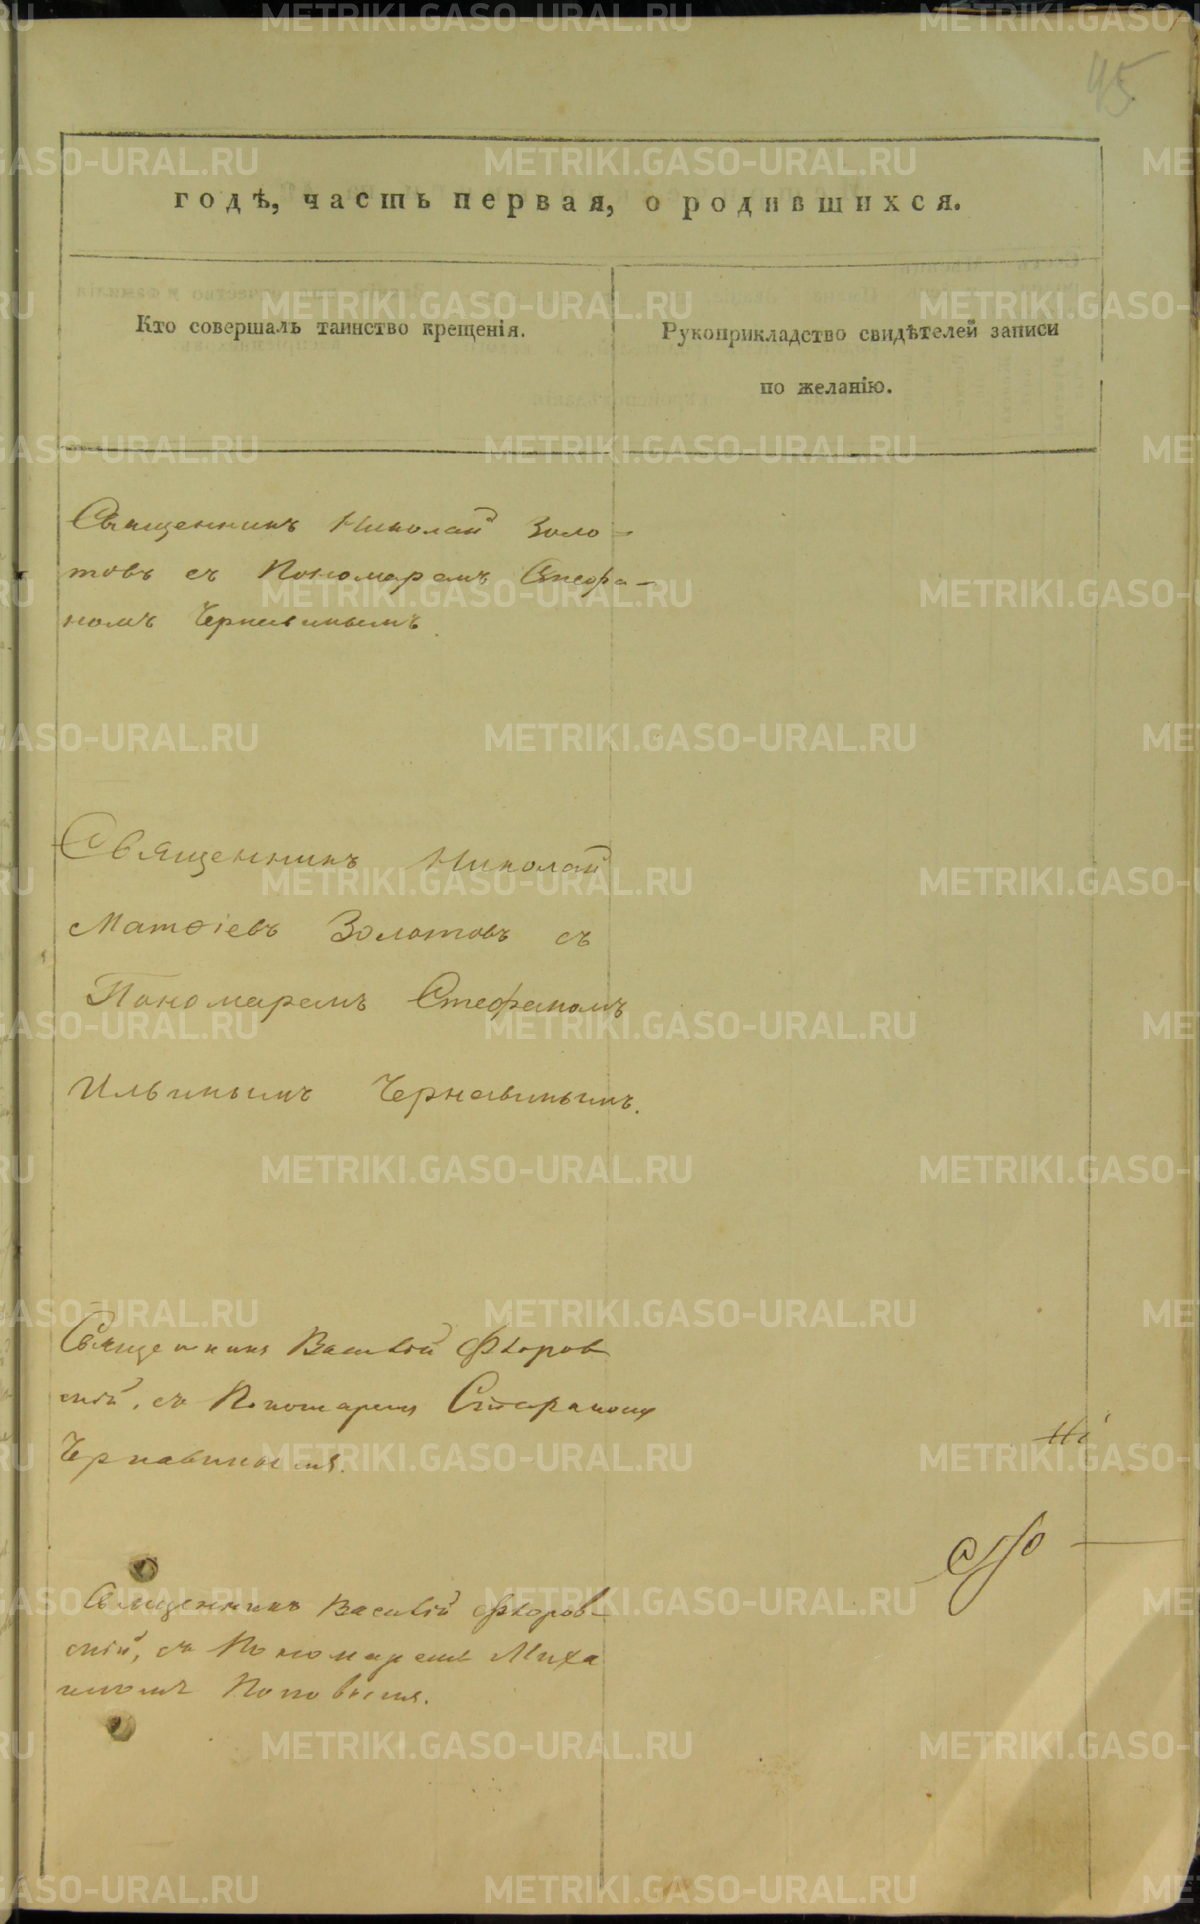 45
годѣ, часть первая, о родившихся.
Кто совершалъ таинство крещенія.
Рукоприкладство свидѣтелей записи
по желанію.
Священникъ Николай Золо-
товъ съ Пономаремъ Стефа-
номъ Чернавинымъ
Священникъ Николай
Матѳіевъ Золотовъ съ
Пономаремъ Стефаномъ
Ильинымъ Чернавинымъ.
Священникъ Василій Флоров
скій, съ Пономаремъ Стефаномъ
Чернавинымъ.
Священникъ Василій Флоров-
скій, съ Пономаремъ Миха
иломъ Поповымъ.
METRIKI.GASO-URAL.RU